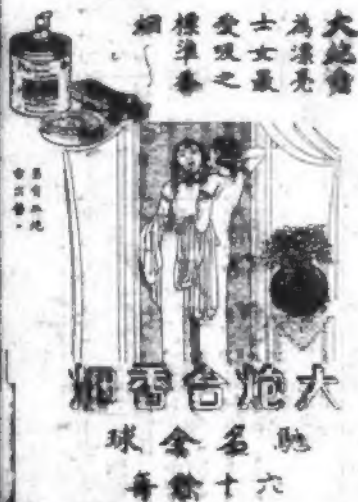 大炮臺
為漂亮
士女最
愛吸之
標準香
烟
大炮台香烟
馳名全球
六十餘年